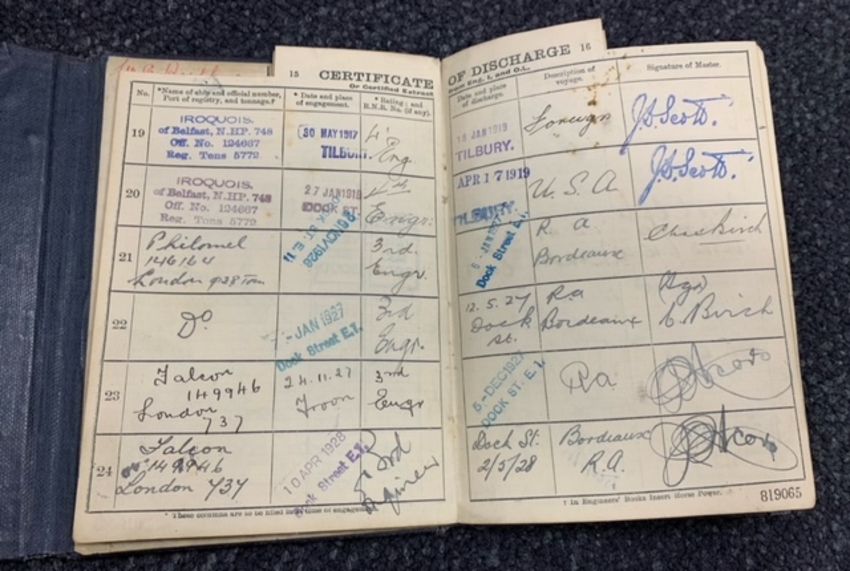 15 CERTIFICATE
Or Certified Extract
OF DISCHARGE 16
from Eng. 1, and O.L.
No.
*Name of ship and official number,
Port of registry, and tonnage.†
* Date and place
of engagement.
* Rating; and
R.N.R. No. (if any).
Date and place
of discharge.
Description of
voyage.
Signature of Master.
19
IROQUOIS.
of Belfast, N.HP. 748
Off. No. 124667
Reg. Tons 5772
30 MAY 1917
TILBURY.
4'
Eng
JAN 1919
TILBURY.
Foreign
J.S. Scott.
20
IROQUOIS.
of Belfast, N.HP. 748
Off. No. 124667
Reg. Tons 5772
27 JAN 1919
DOCK ST.
4th
Engr.
APR 17 1919
TILBURY
U.S.A
J.S. Scott.
21
Philomel
146164
London 928 Tons
3rd.
Engr.
Dock Street E.1.
R. A
Bordeaux
22
Do
JAN 1927
Dock Street E.1.
3rd
Engr.
12.5.27
Dock
St.
R.a
Bordeaux
Birch
23
Falcon
149946
London
737
24.11.27
Troon
3rd
Engr
5-DEC 1927
DOCK ST. E.1.
Ra
24
Falcon
149946
London 737
10 APR 1928
Dock Street E.1.
3rd
Engineer
Dock St.
2/5/28
Bordeaux
R.A.
* These columns are to be filled in at time of engagement.
† In Engineers' Books Insert Horse Power.
819065